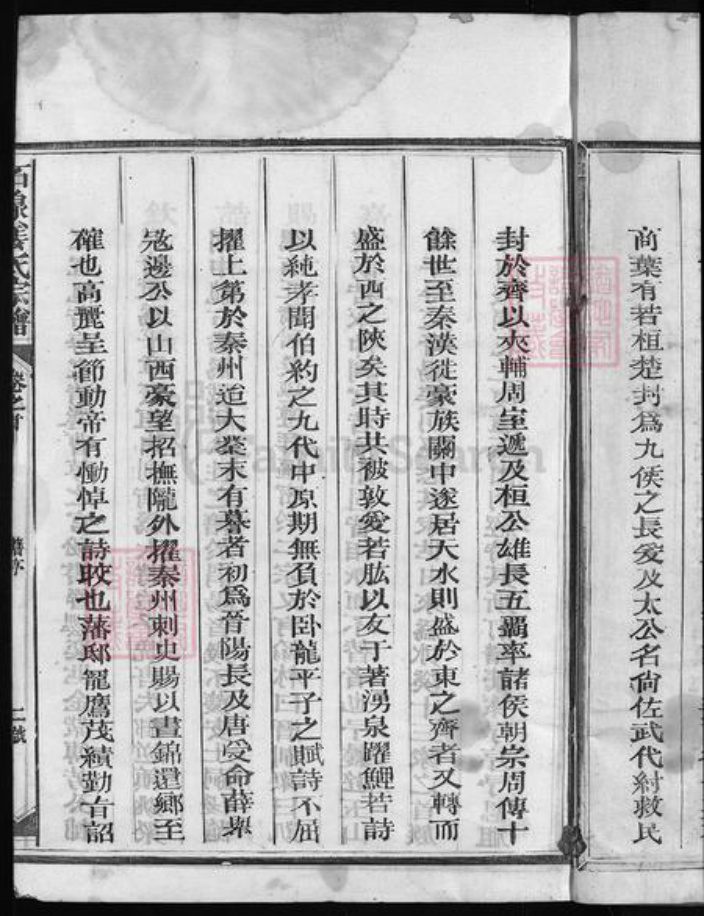 商葉有若桓楚封爲九侯之長爰及太公名尙佐武代紂救民
封於齊以夾輔周室遞及桓公雄長五覇率諸侯朝宗周傳十
餘世至秦漢徙豪族關中遂居天水則盛於東之齊者又轉而
盛於西之陝矣其時共被敦愛若肱以友于著湧泉躍鯉若詩
以純孝聞伯約之九代中原期無負於卧龍平子之賦詩不屈
擢上第於秦州迨大業末有暮者初爲晉陽長及唐受命薛舉
寇邊公以山西豪望招撫隴外擢秦州刺史賜以晝錦還鄉至
確也高麗呈節動帝有慟悼之詩晈也藩邸寵鷹茂績勤有詔
姜氏宗譜
卷之首
舊序
二
FamilySearch